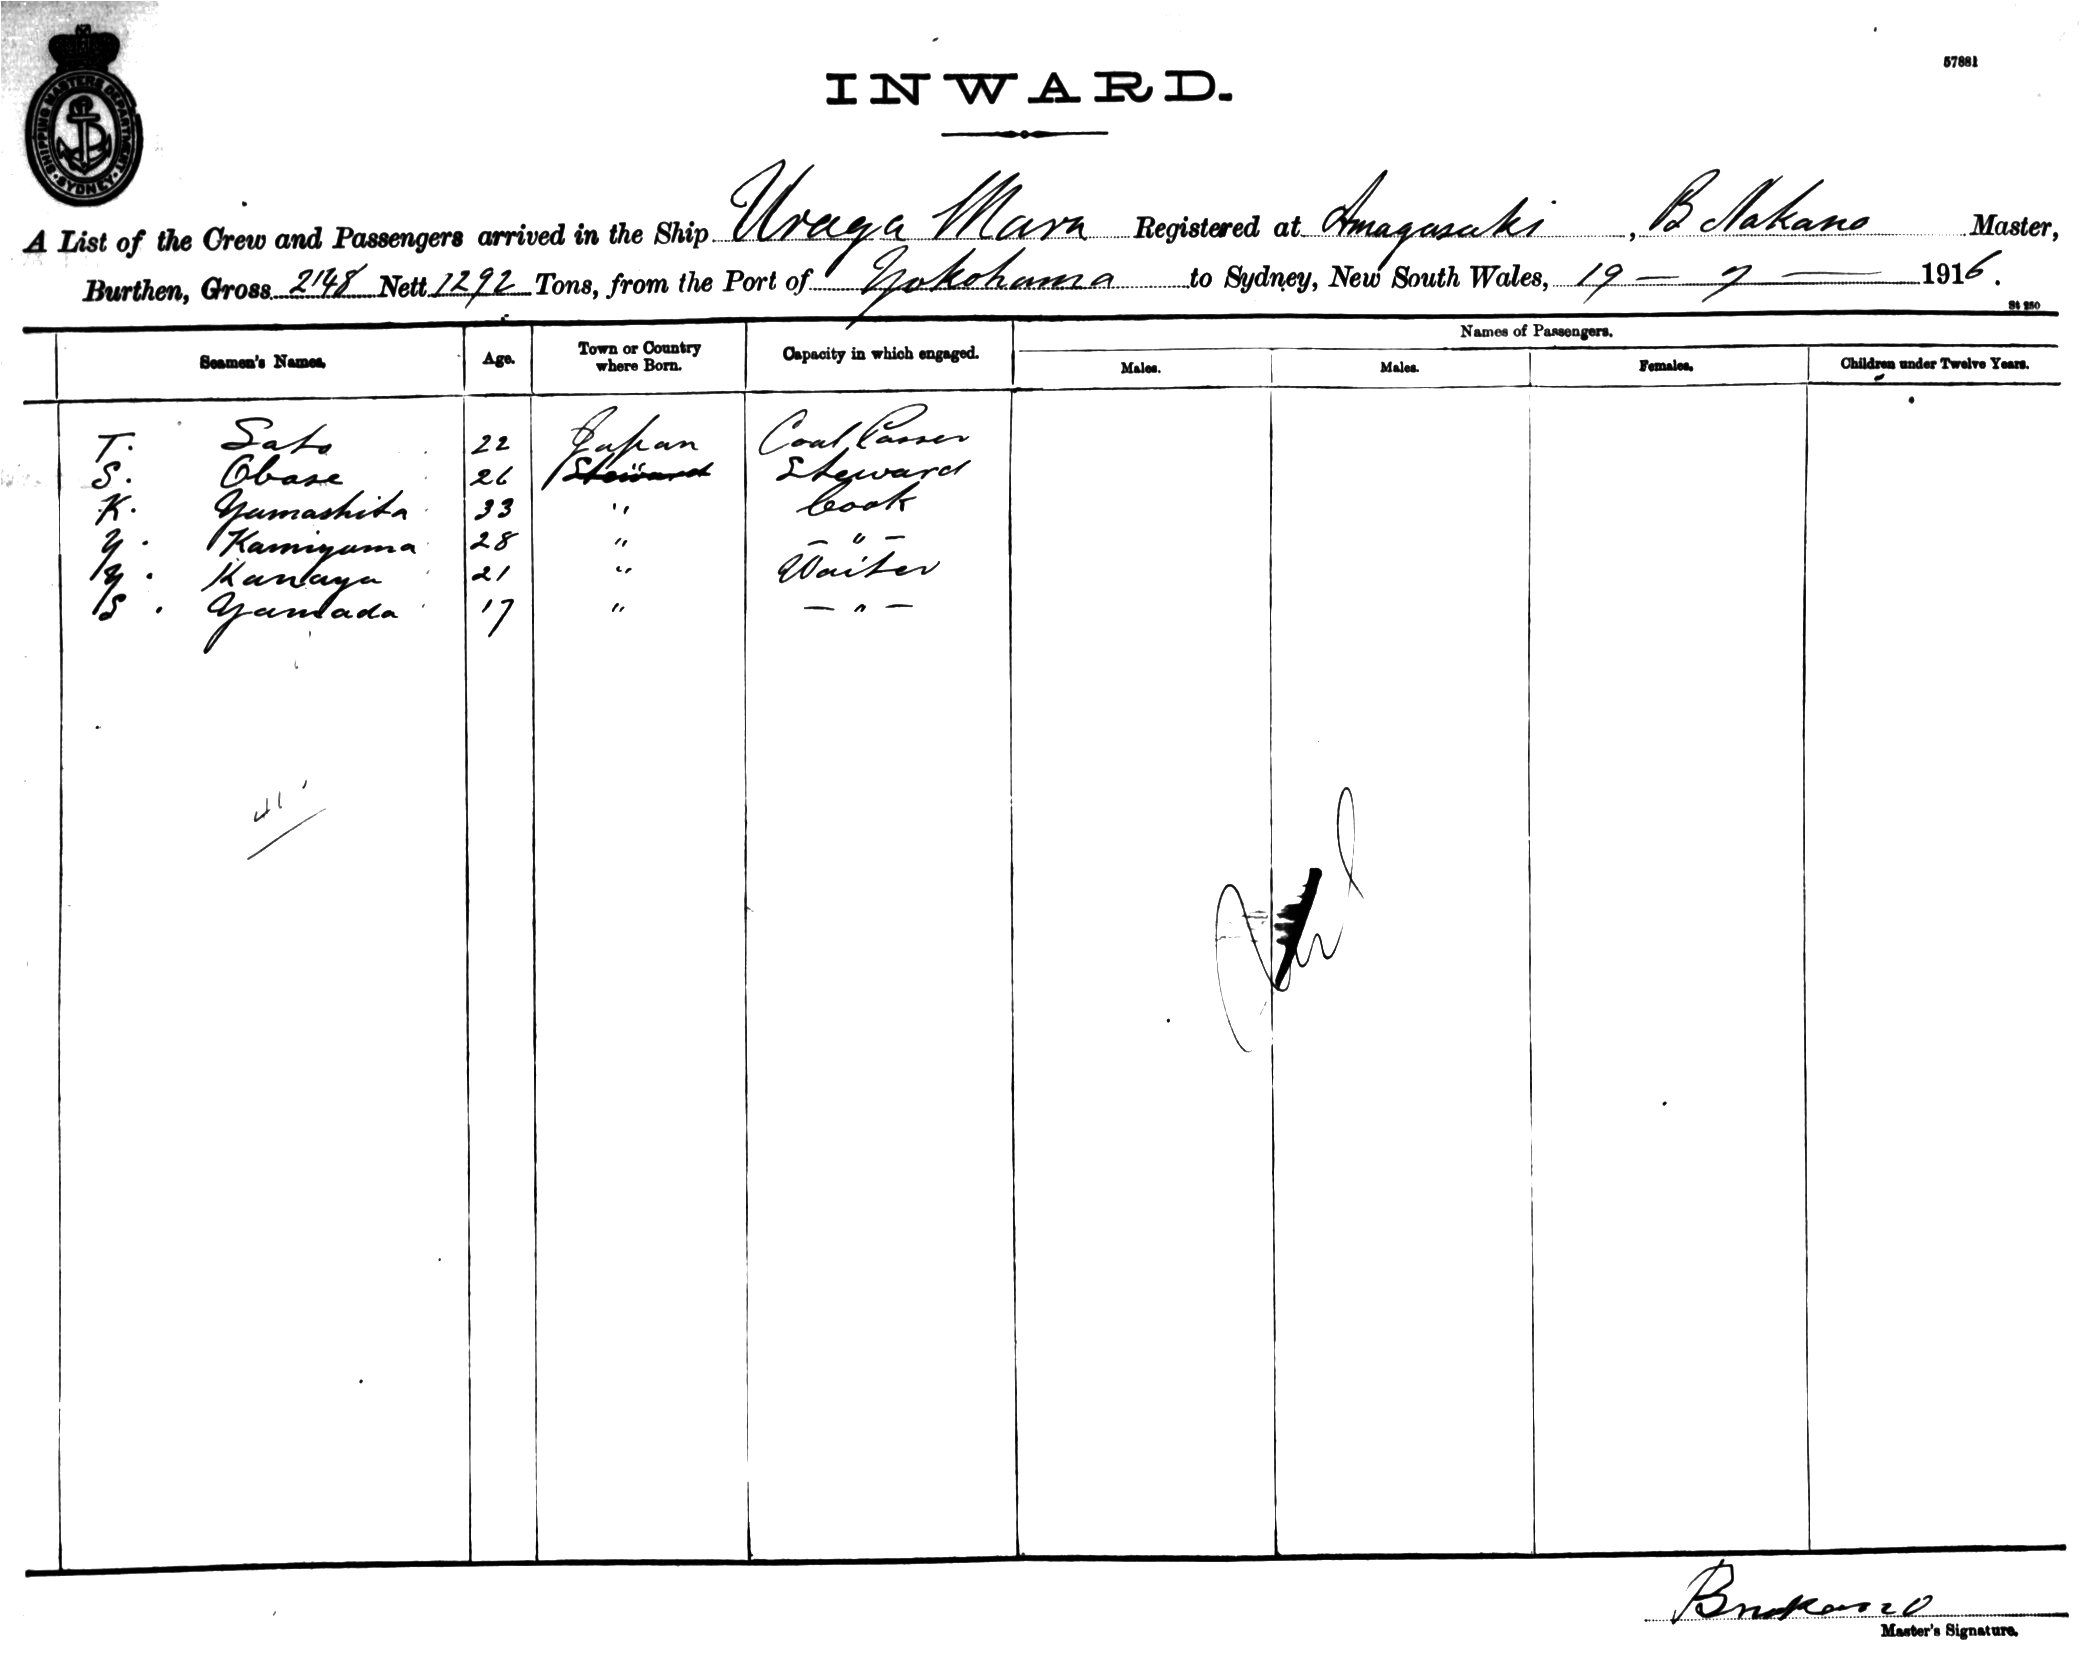 SHIPPING MASTERS DEPARTMENT
SYDNEY
57881
INWARD.
A List of the Crew and Passengers arrived in the Ship Uraga Maru Registered at Amagasaki, B Nakano Master,
Burthen, Gross 2148 Nett 1292 Tons, from the Port of Yokohama to Sydney, New South Wales, 19 — 7 — 1916.
St 250
Seamen's Names. Age. Town or Country where Born. Capacity in which engaged. Names of Passengers.
Males. Males. Females. Children under Twelve Years.
T. Sato 22 Japan Coal Passer
S. Obase 26 Steward " Steward
K. Yamashita 33 " Cook
Y. Kamiyama 28 " — " —
Y. Kanaya 21 " Waiter
S. Yamada 17 " — " —
41
BNakano
Master's Signature.